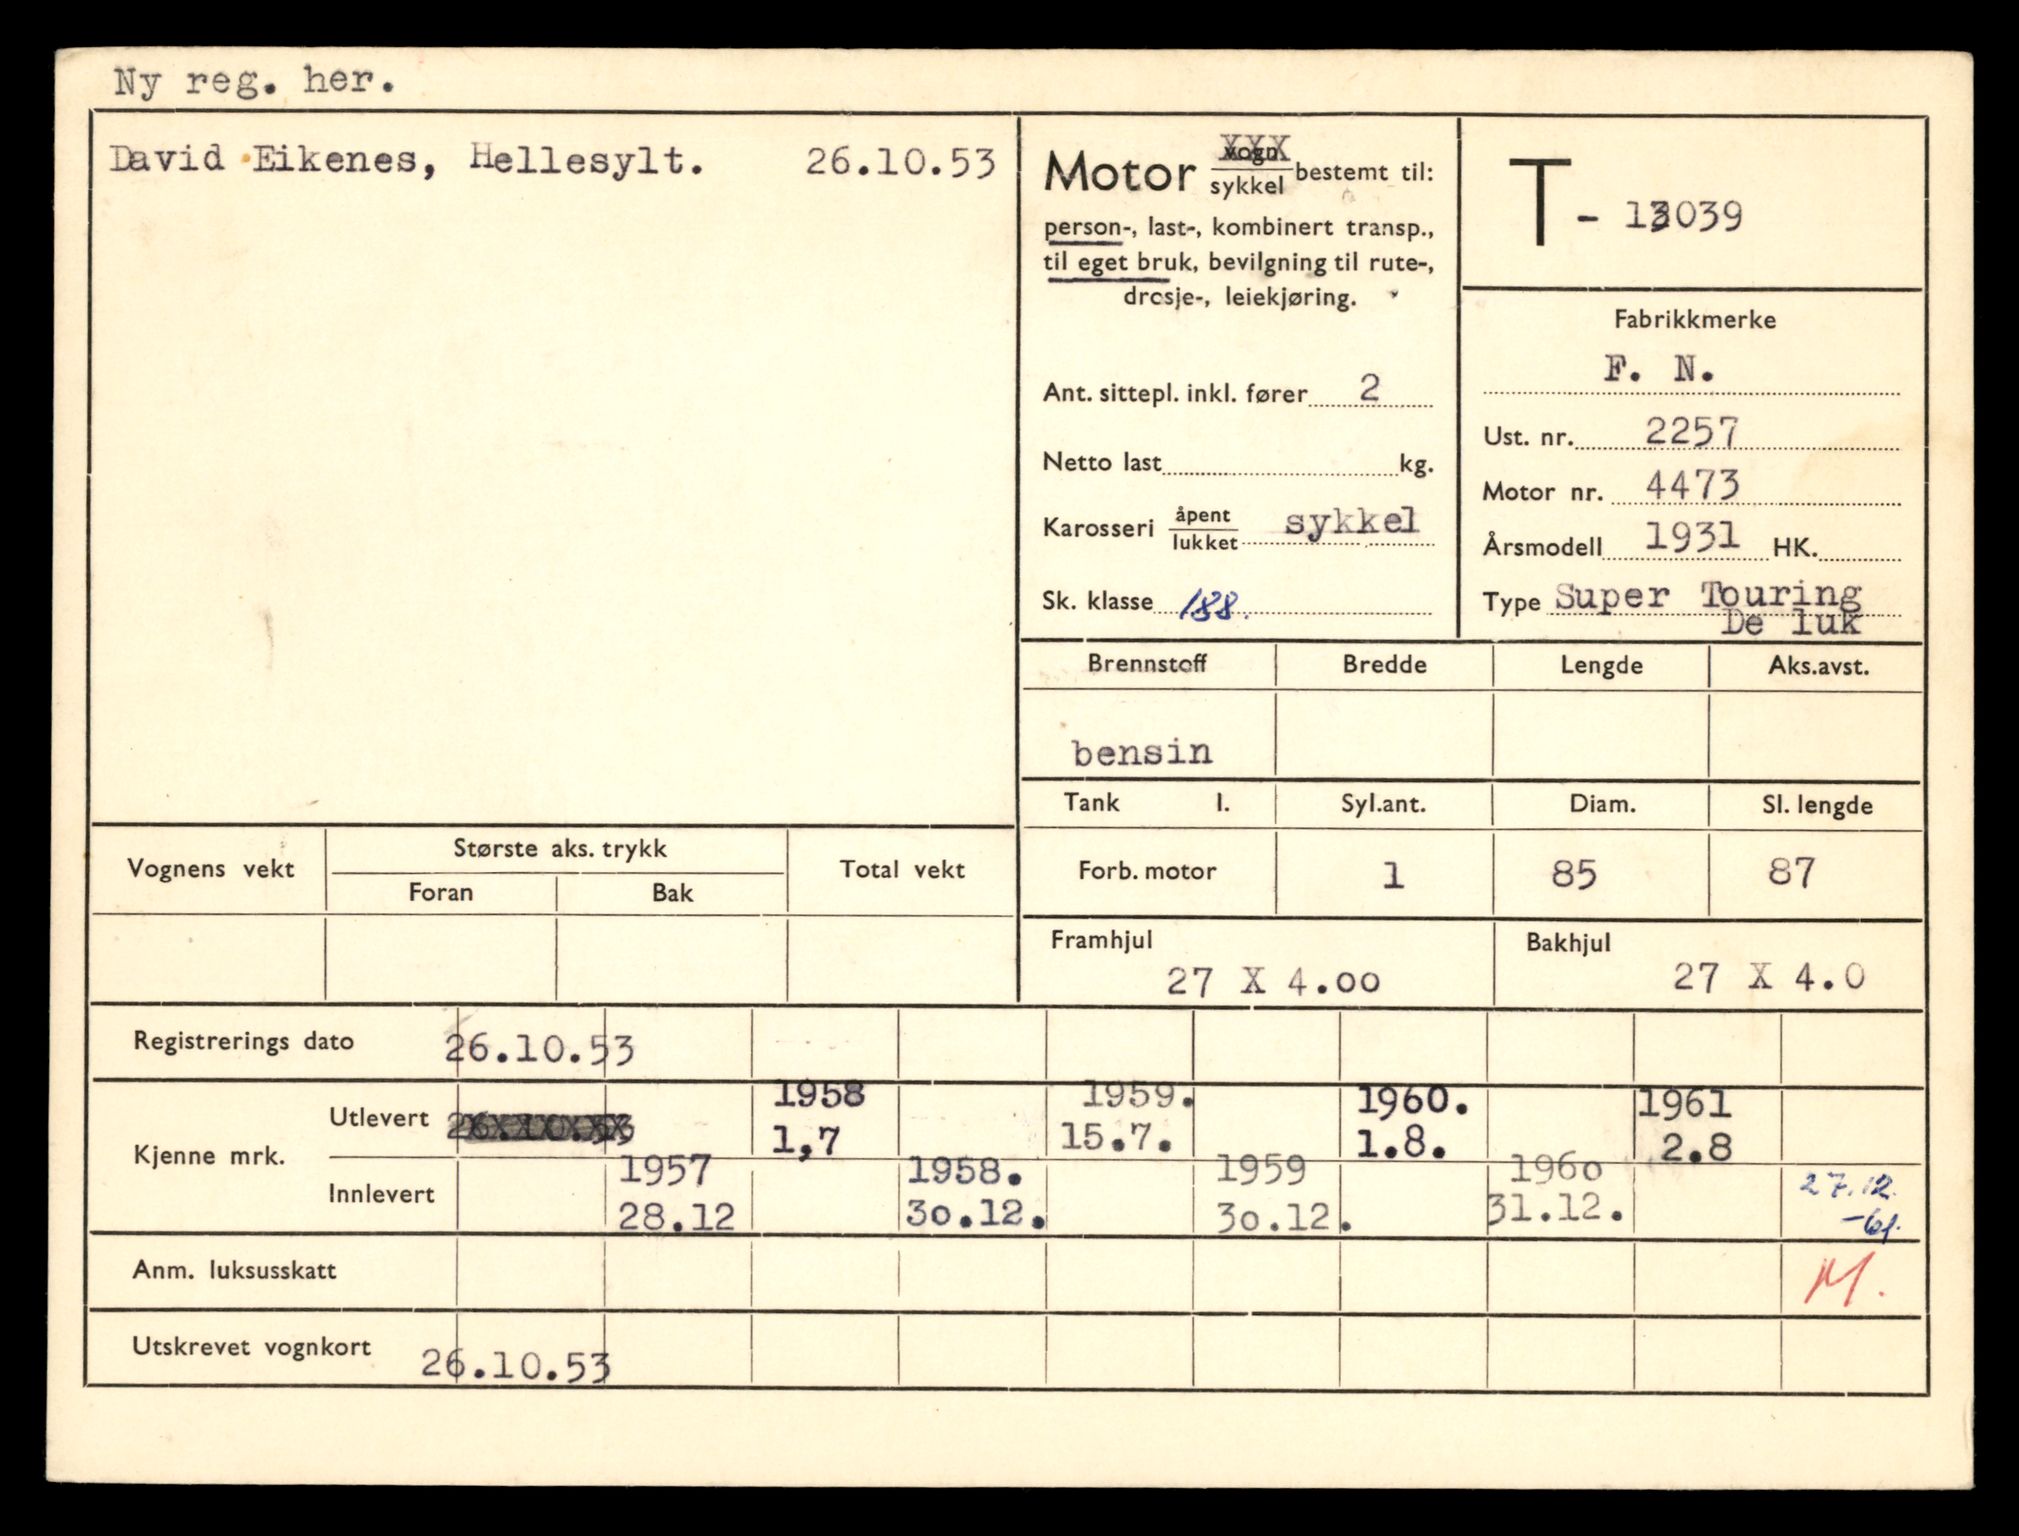 Ny reg. her.
David Eikenes, Hellesylt. 26.10.53
Motor vogn/sykkel bestemt til:
person-, last-, kombinert transp.,
til eget bruk, bevilgning til rute-,
drosje-, leiekjøring.
Ant. sittepl. inkl. fører 2
Netto last kg.
Karosseri åpent/lukket sykkel
Sk. klasse 188.
T - 13039
Fabrikkmerke
F. N.
Ust. nr. 2257
Motor nr. 4473
Årsmodell 1931 HK.
Type Super Touring
De luk
Brennstoff Bredde Lengde Aks.avst.
bensin
Tank l. Syl.ant. Diam. Sl. lengde
Forb. motor 1 85 87
Framhjul Bakhjul
27 X 4.00 27 X 4.0
Vognens vekt Største aks. trykk Total vekt
Foran Bak
Registrerings dato 26.10.53
Kjenne mrk.
Utlevert 26.10.53 1958 1959. 1960. 1961
1,7 15.7. 1.8. 2.8
Innlevert 1957 1958. 1959 1960 27.12.
28.12 30.12. 30.12. 31.12. -61.
Anm. luksusskatt M.
Utskrevet vognkort 26.10.53